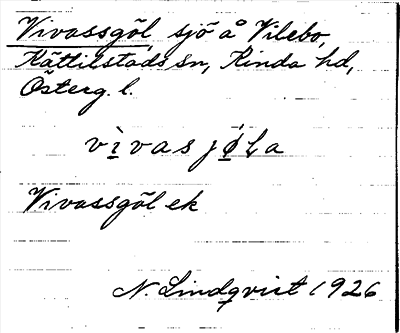 Vivassgöl, sjö å Vilebo,
Kättilstads sn, Kinda hd,
Österg. l.
vìvasjøla
Vivassgöl ek
N. Lindqvist 1926